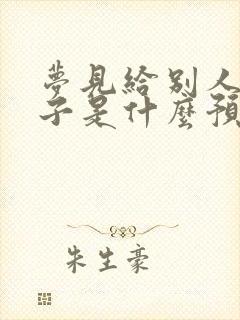 夢見給別人
子是什麼預
朱生豪